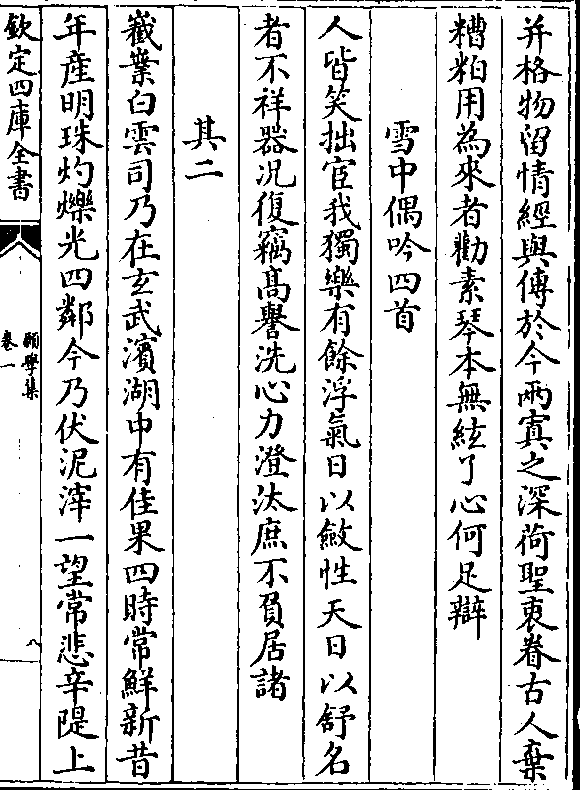 并格物留情經與傳於今兩寘之深荷聖衷眷古人棄
糟粕用為來者勸素琴本無絃了心何足辯
雪中偶吟四首
人皆笑拙宦我獨樂有餘浮氣日以斂性天日以舒名
者不祥器况復竊髙譽洗心力澄汰庶不負居諸
其二
嶻嶪白雲司乃在玄武濱湖中有佳果四時常鮮新昔
年産明珠灼爍光四鄰今乃伏泥滓一望常悲辛隄上
欽定四庫全書
願學集
卷一
八